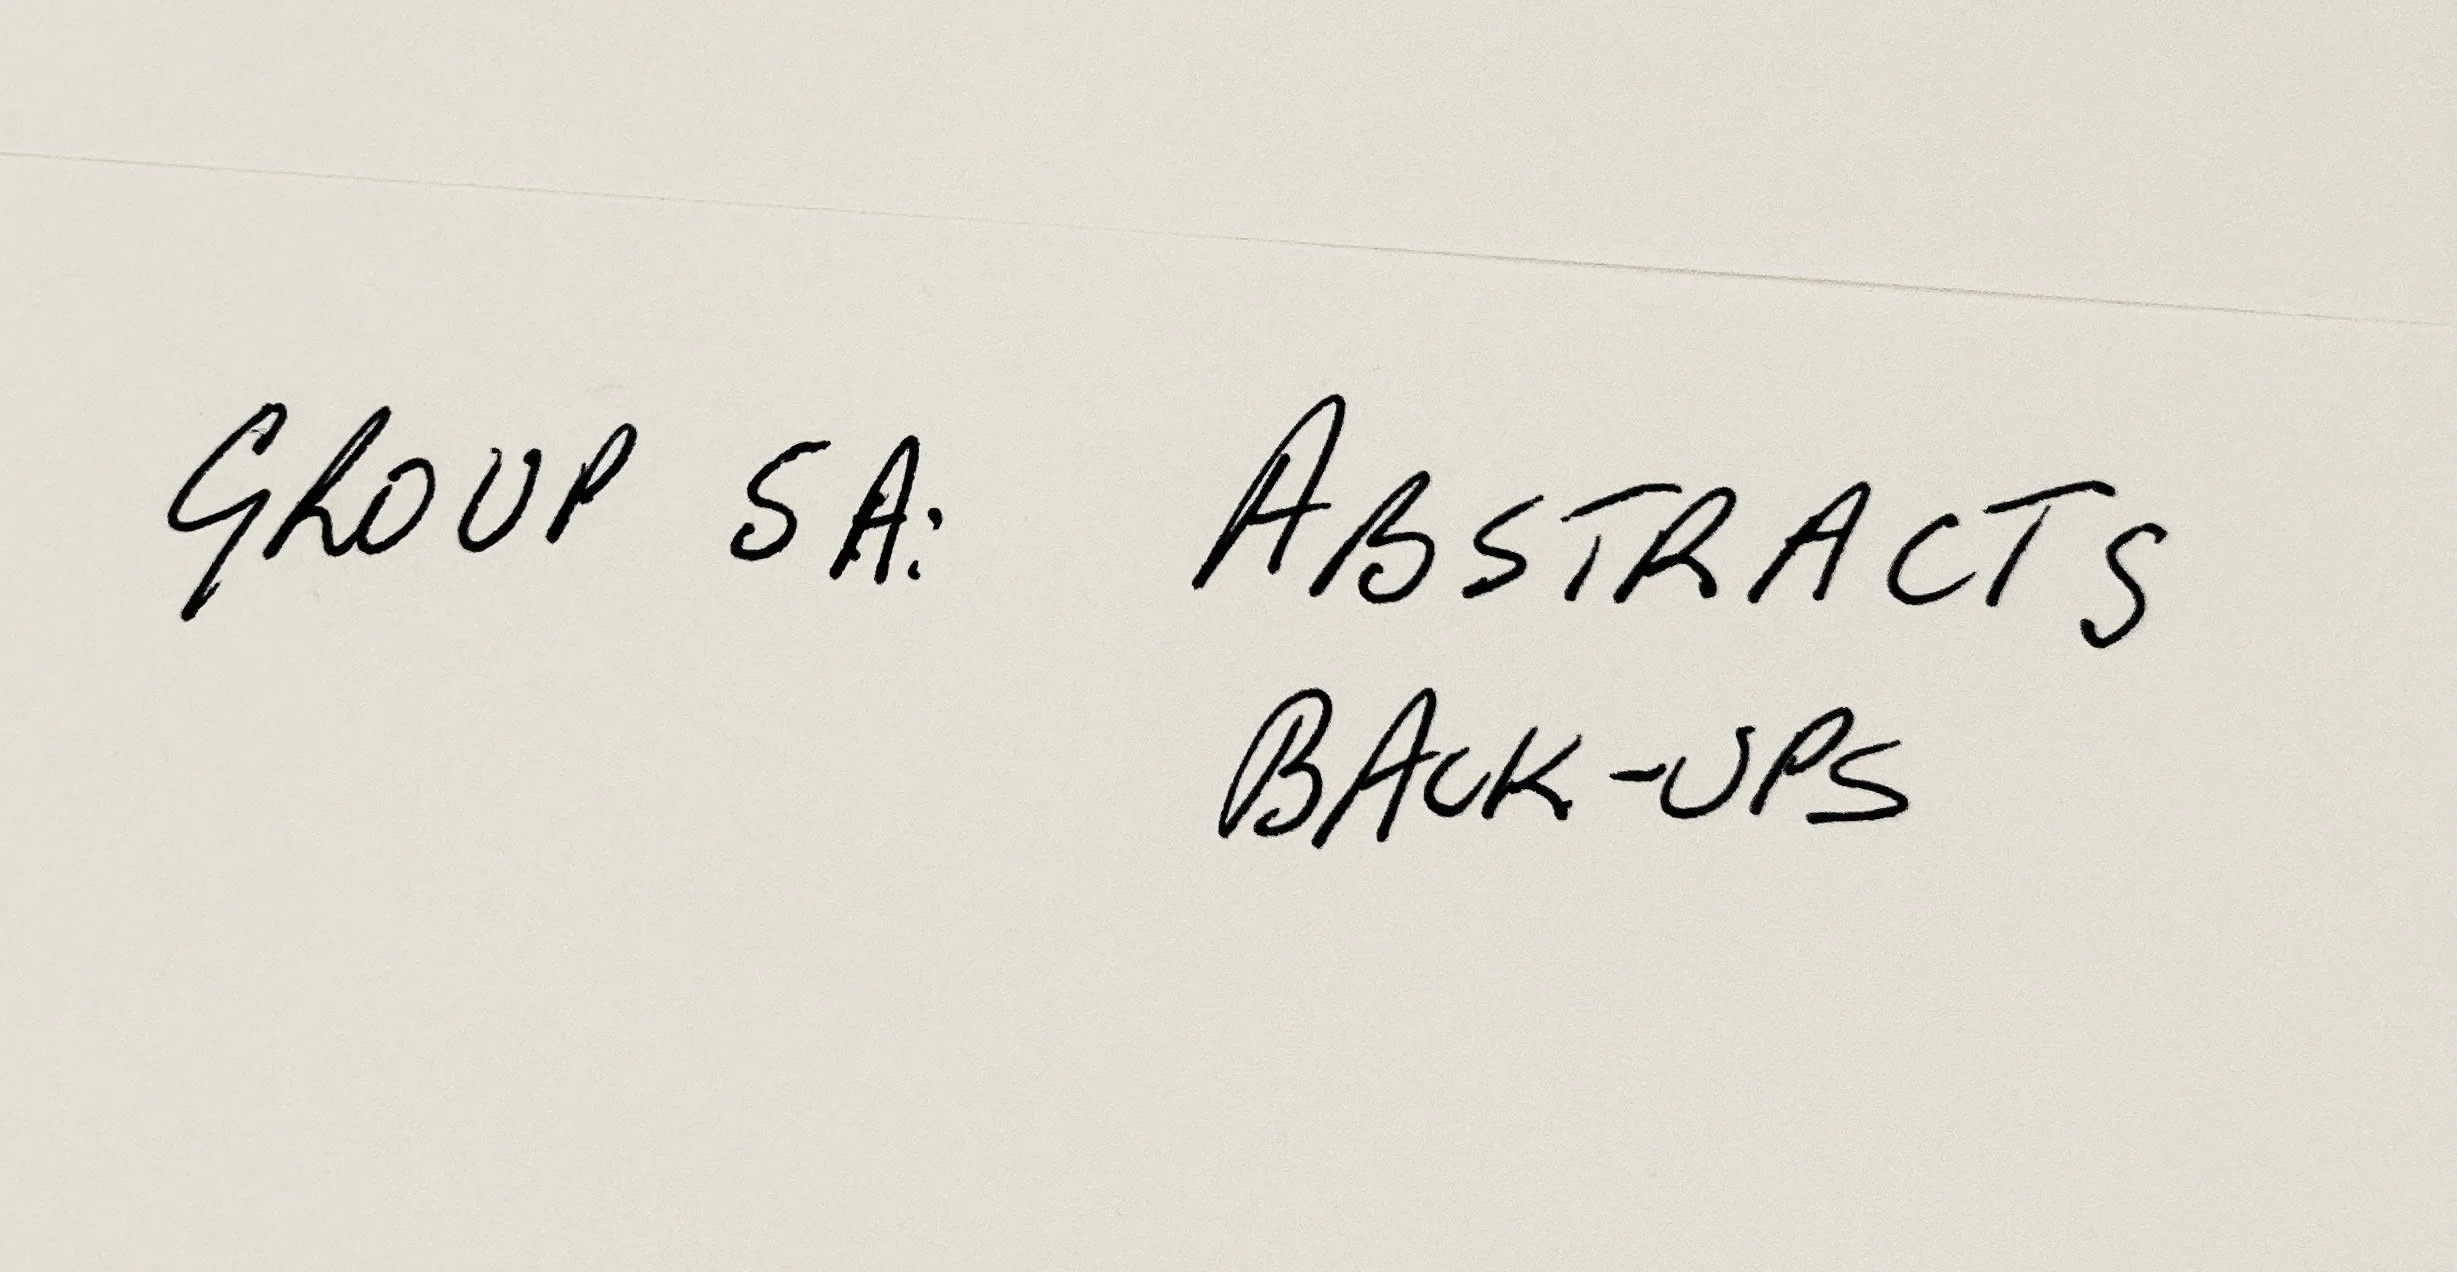 GROUP 5A: ABSTRACTS
BACK-UPS